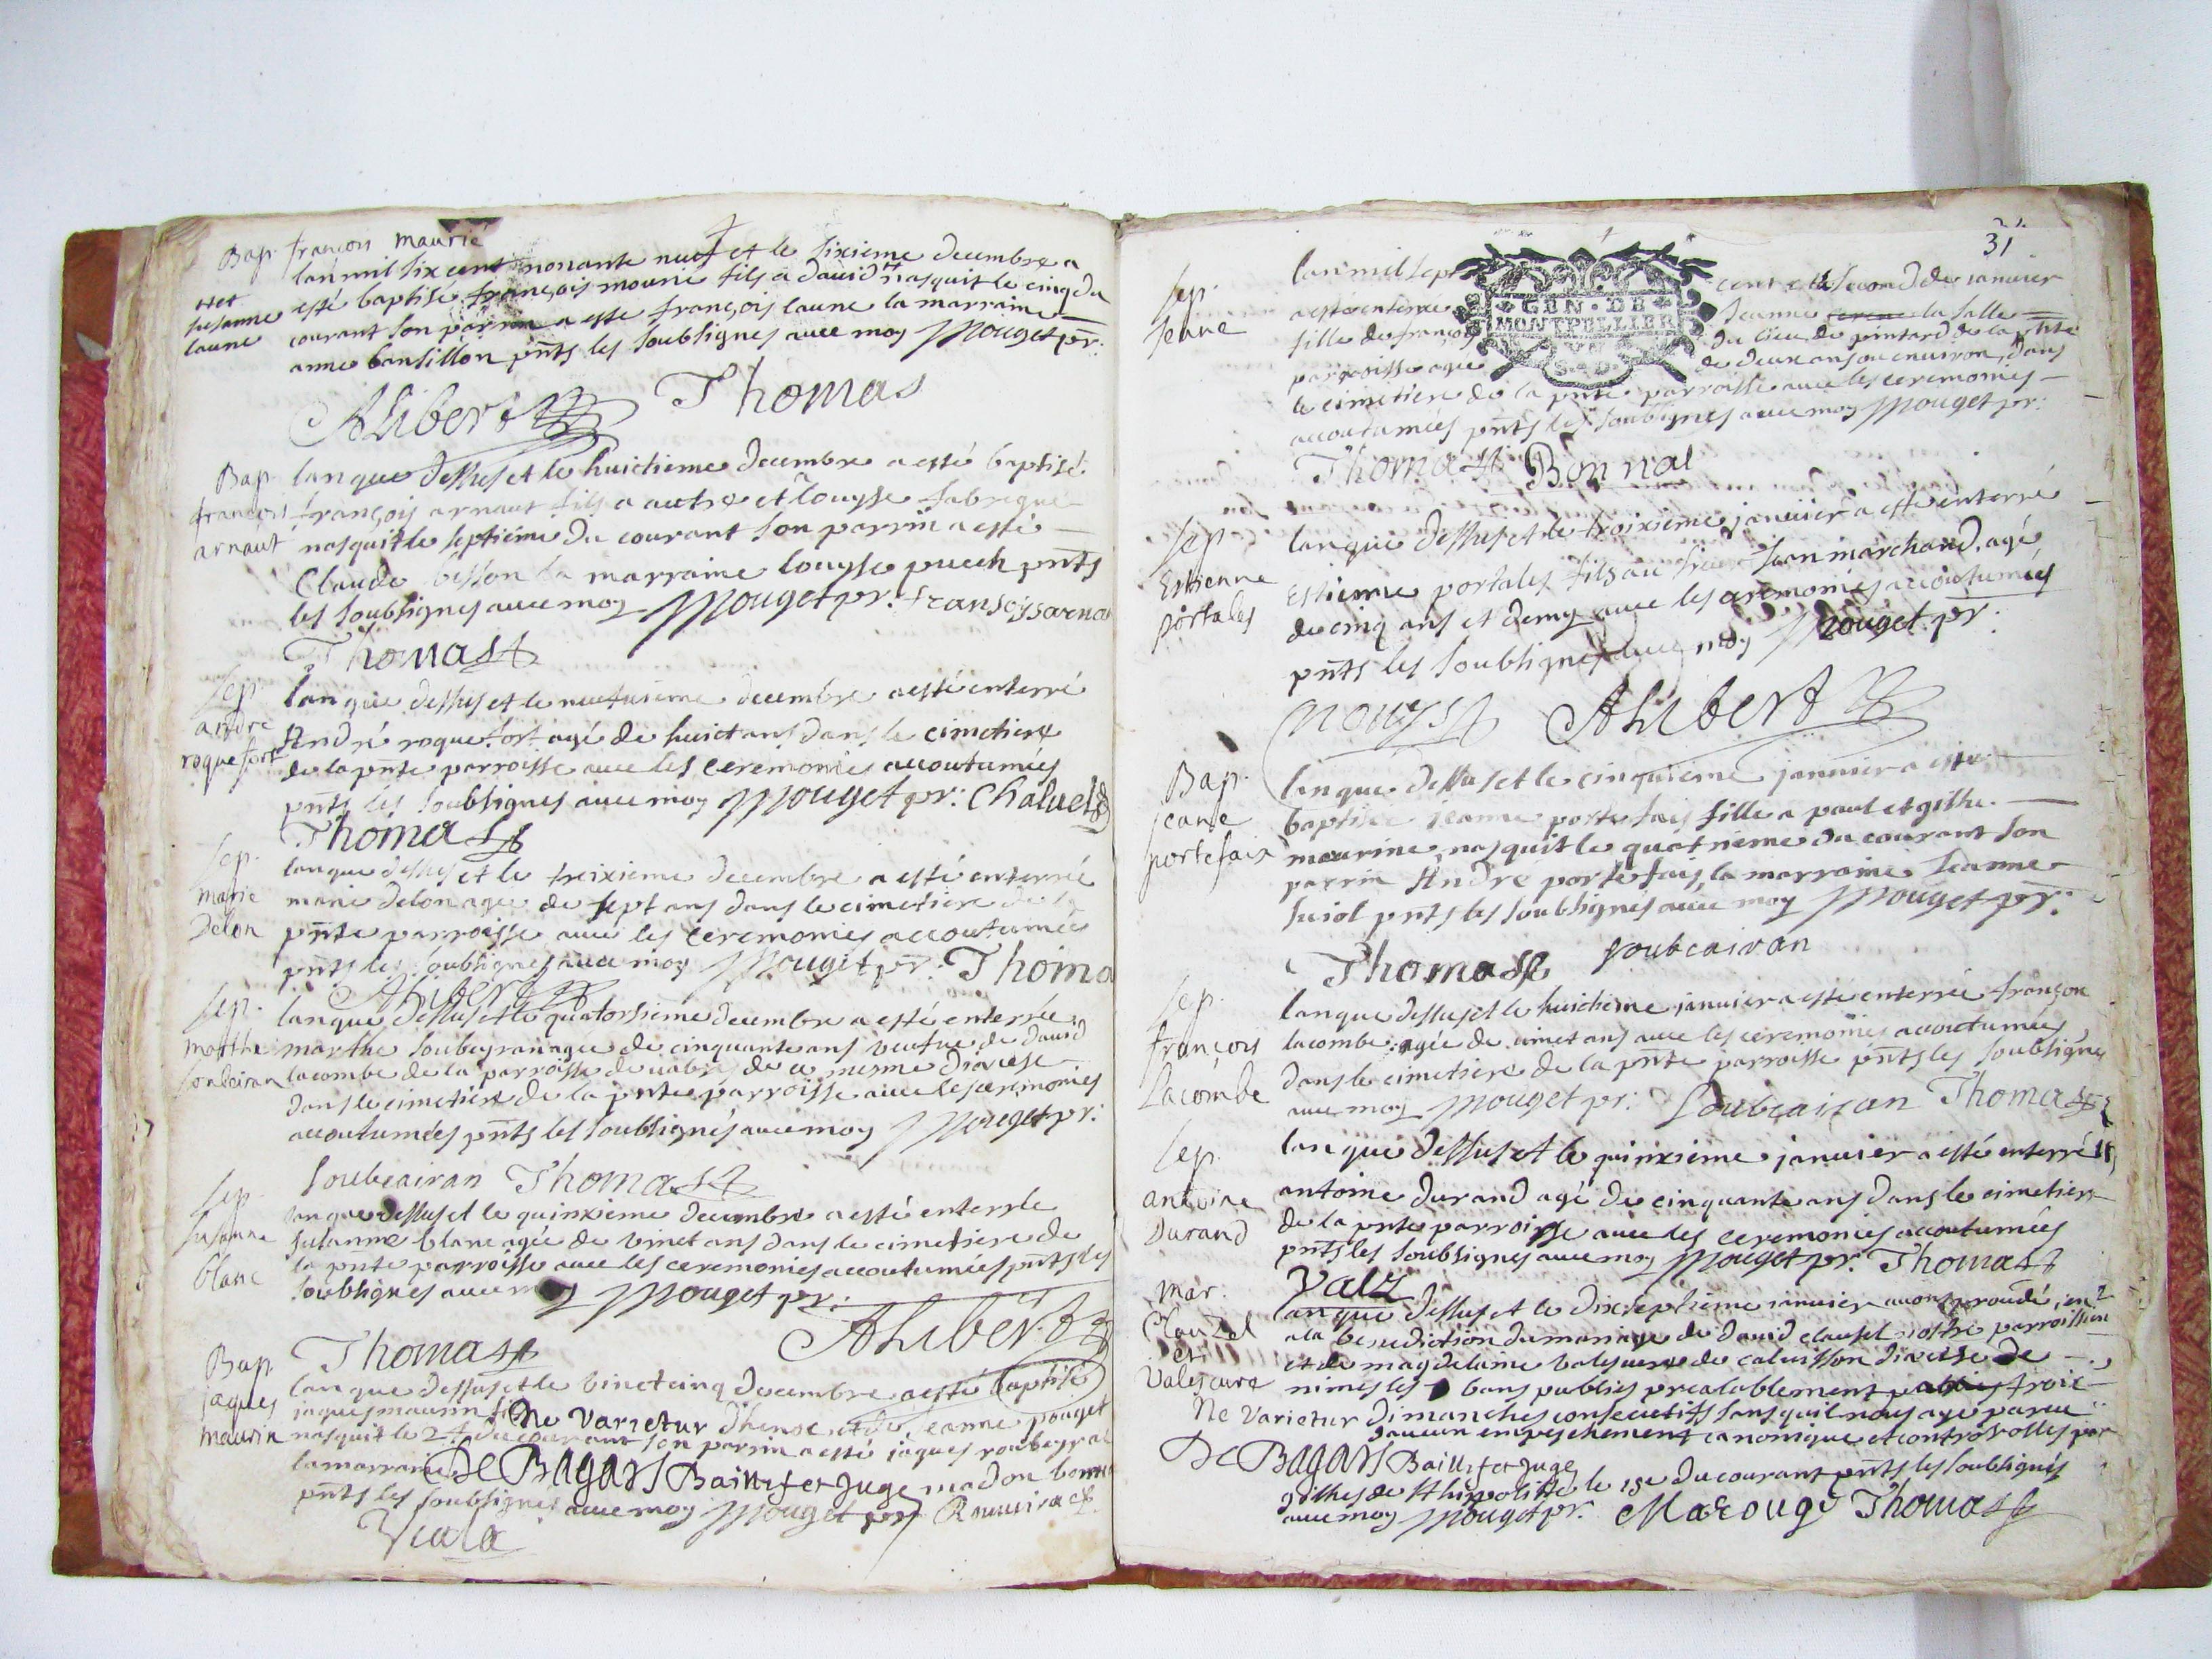 Bap. françois maurié
lan mil six cent nonante neuf et le sixieme decembre a
esté baptisé françois mourié fils a dauid nasquit le cinq du
++et
susanne
laune
courant son parrin a esté françois laune la marraine
anne bansillon pnts les soubsignes auec moy Mouget pr:
Alibert Thomas
Bap.
françois
arnaut
lan que dessus et le huictieme decembre a esté baptisé
françois arnaut fils a autre et louyse fabregue
nasquit le septieme du courant son parrin a esté
Claude besson la marraine louyse puech pnts
les soubsignes auec moy Mouget pr: fransoys arna
Thomas
Sep.
andre
roquefort
lan que dessus et le neufuieme decembre a esté enterré
André roquefort agé de huict ans dans le cimetiere
de la pnte parroisse auec les ceremonies accoutumées
pnts les soubsignes auec moy Mouget pr: Chaluel
Thomas
Sep.
marie
Delon
lan que dessus et le treixieme decembre a esté enterrée
marie delon agée de sept ans dans le cimetiere de la
pnte parroisse auec les ceremonies accoutumées
pnts les soubsignes auec moy Mouget pr: Thoma
Alibert
Sep.
marthe
soubeiran
lan que dessus et le quatorsieme decembre a esté enterrée
marthe soubeyran agée de cinquante ans veufue de dauid
lacombe de la parroisse de uabres de ce mesme diocese
dans le cimetiere de la pnte parroisse auec les ceremonies
accoutumées pnts les soubsignés auec moy Mouget pr:
Soubeairan Thomas
Sep.
susanne
blanc
lan que dessus et le quinxieme decembre a esté enterrée
susanne blanc agée de vinct ans dans le cimetiere de
la pnte parroisse auec les ceremonies accoutumées pnts les
soubsignes auec moy Mouget pr:
Thomas Alibert
Bap.
jaques
maurin
lan que dessus et le vinct cinq decembre a esté baptisé
jaques maurin
Ne Varietur
et de jeanne pouget
nasquit le 24 du courant son parrin a esté jaques roubeyrol
la marraine De Bagars Baillif et Juge madon
pnts les soubsignes auec moy Mouget pr
Viala
31
Sep.
Jeane
lan mil sept cent et le second de januier
a esté enterrée Jeanne la salle
fille de françois du lieu de pintard de la pnte
parroisse agée de deux ans ou enuiron, dans
GEN. DE
MONTPELLIER
le cimetiere de la pnte parroisse auec les ceremonies
accoutumées pnts les soubsignes auec moy Mouget pr:
Thomas Bonnal
Sep.
Estienne
portales
lan que dessus et le troixieme januier a esté enterré
Estienne portales fils au sieur Jean marchand, agé
de cinq ans et demy auec les ceremonies accoutumées
pnts les soubsignes auec moy Mouget pr:
Alibert
Bap.
jeane
portefaix
lan que dessus et le cinquieme januier a esté
baptisée jeanne portefais fille a paul et
maurine, nasquit le quatrieme du courant son
parrin André portefais, la marraine Jeanne
suiol pnts les soubsignes auec moy Mouget pr:
Thomas Soubeairan
Sep.
françois
Lacombe
lan que dessus et le huictieme januier a esté enterrée françon
lacombe agée de vinct ans auec les ceremonies accoutumées
dans le cimetiere de la pnte parroisse pnts les soubsignes
auec moy Mouget pr: Soubeairan Thomas
Sep.
antoine
Durand
lan que dessus et le quinxieme januier a esté enterré
antoine durand agé de cinquante ans dans le cimetiere
de la pnte parroisse auec les ceremonies accoutumées
pnts les soubsignes auec moy Mouget pr: Thomas
Valz
Mar.
Clauzel
et
Valescure
lan que dessus et le dixseptieme januier auons procedé
a la benediction du mariage de dauid clausel nostre parroissien
et de magdelaine valescure de caluisson diocese de
nimes les bans publies prealablement trois
Ne Varietur
dimanches consecutifs sans quil nous aye paru
aucun empeschement canonique et controrolles par
De Bagars Baillif et Juge
gilhes de st hipolitte le 15e du courant pnts les soubsignés
auec moy Mouget pr: Marouge Thomas